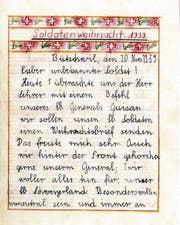 Soldatenweihnacht 1939
Bütschwil, den 20. Nov. 1939
Lieber unbekannter Soldat!
Heute überraschte uns der Herr
Lehrer mit einem Befehl
unseres lb. Generals Guisan
wir sollen unsern lb. Soldaten
einen Weihnachtsbrief senden
Das freute mich sehr. Auch
wir hinter der Front gehorchen
gerne unserm General. Wir
wollen alles tun für unser
lb. Schweizerland Besonders wollen
neutral sein und immer an